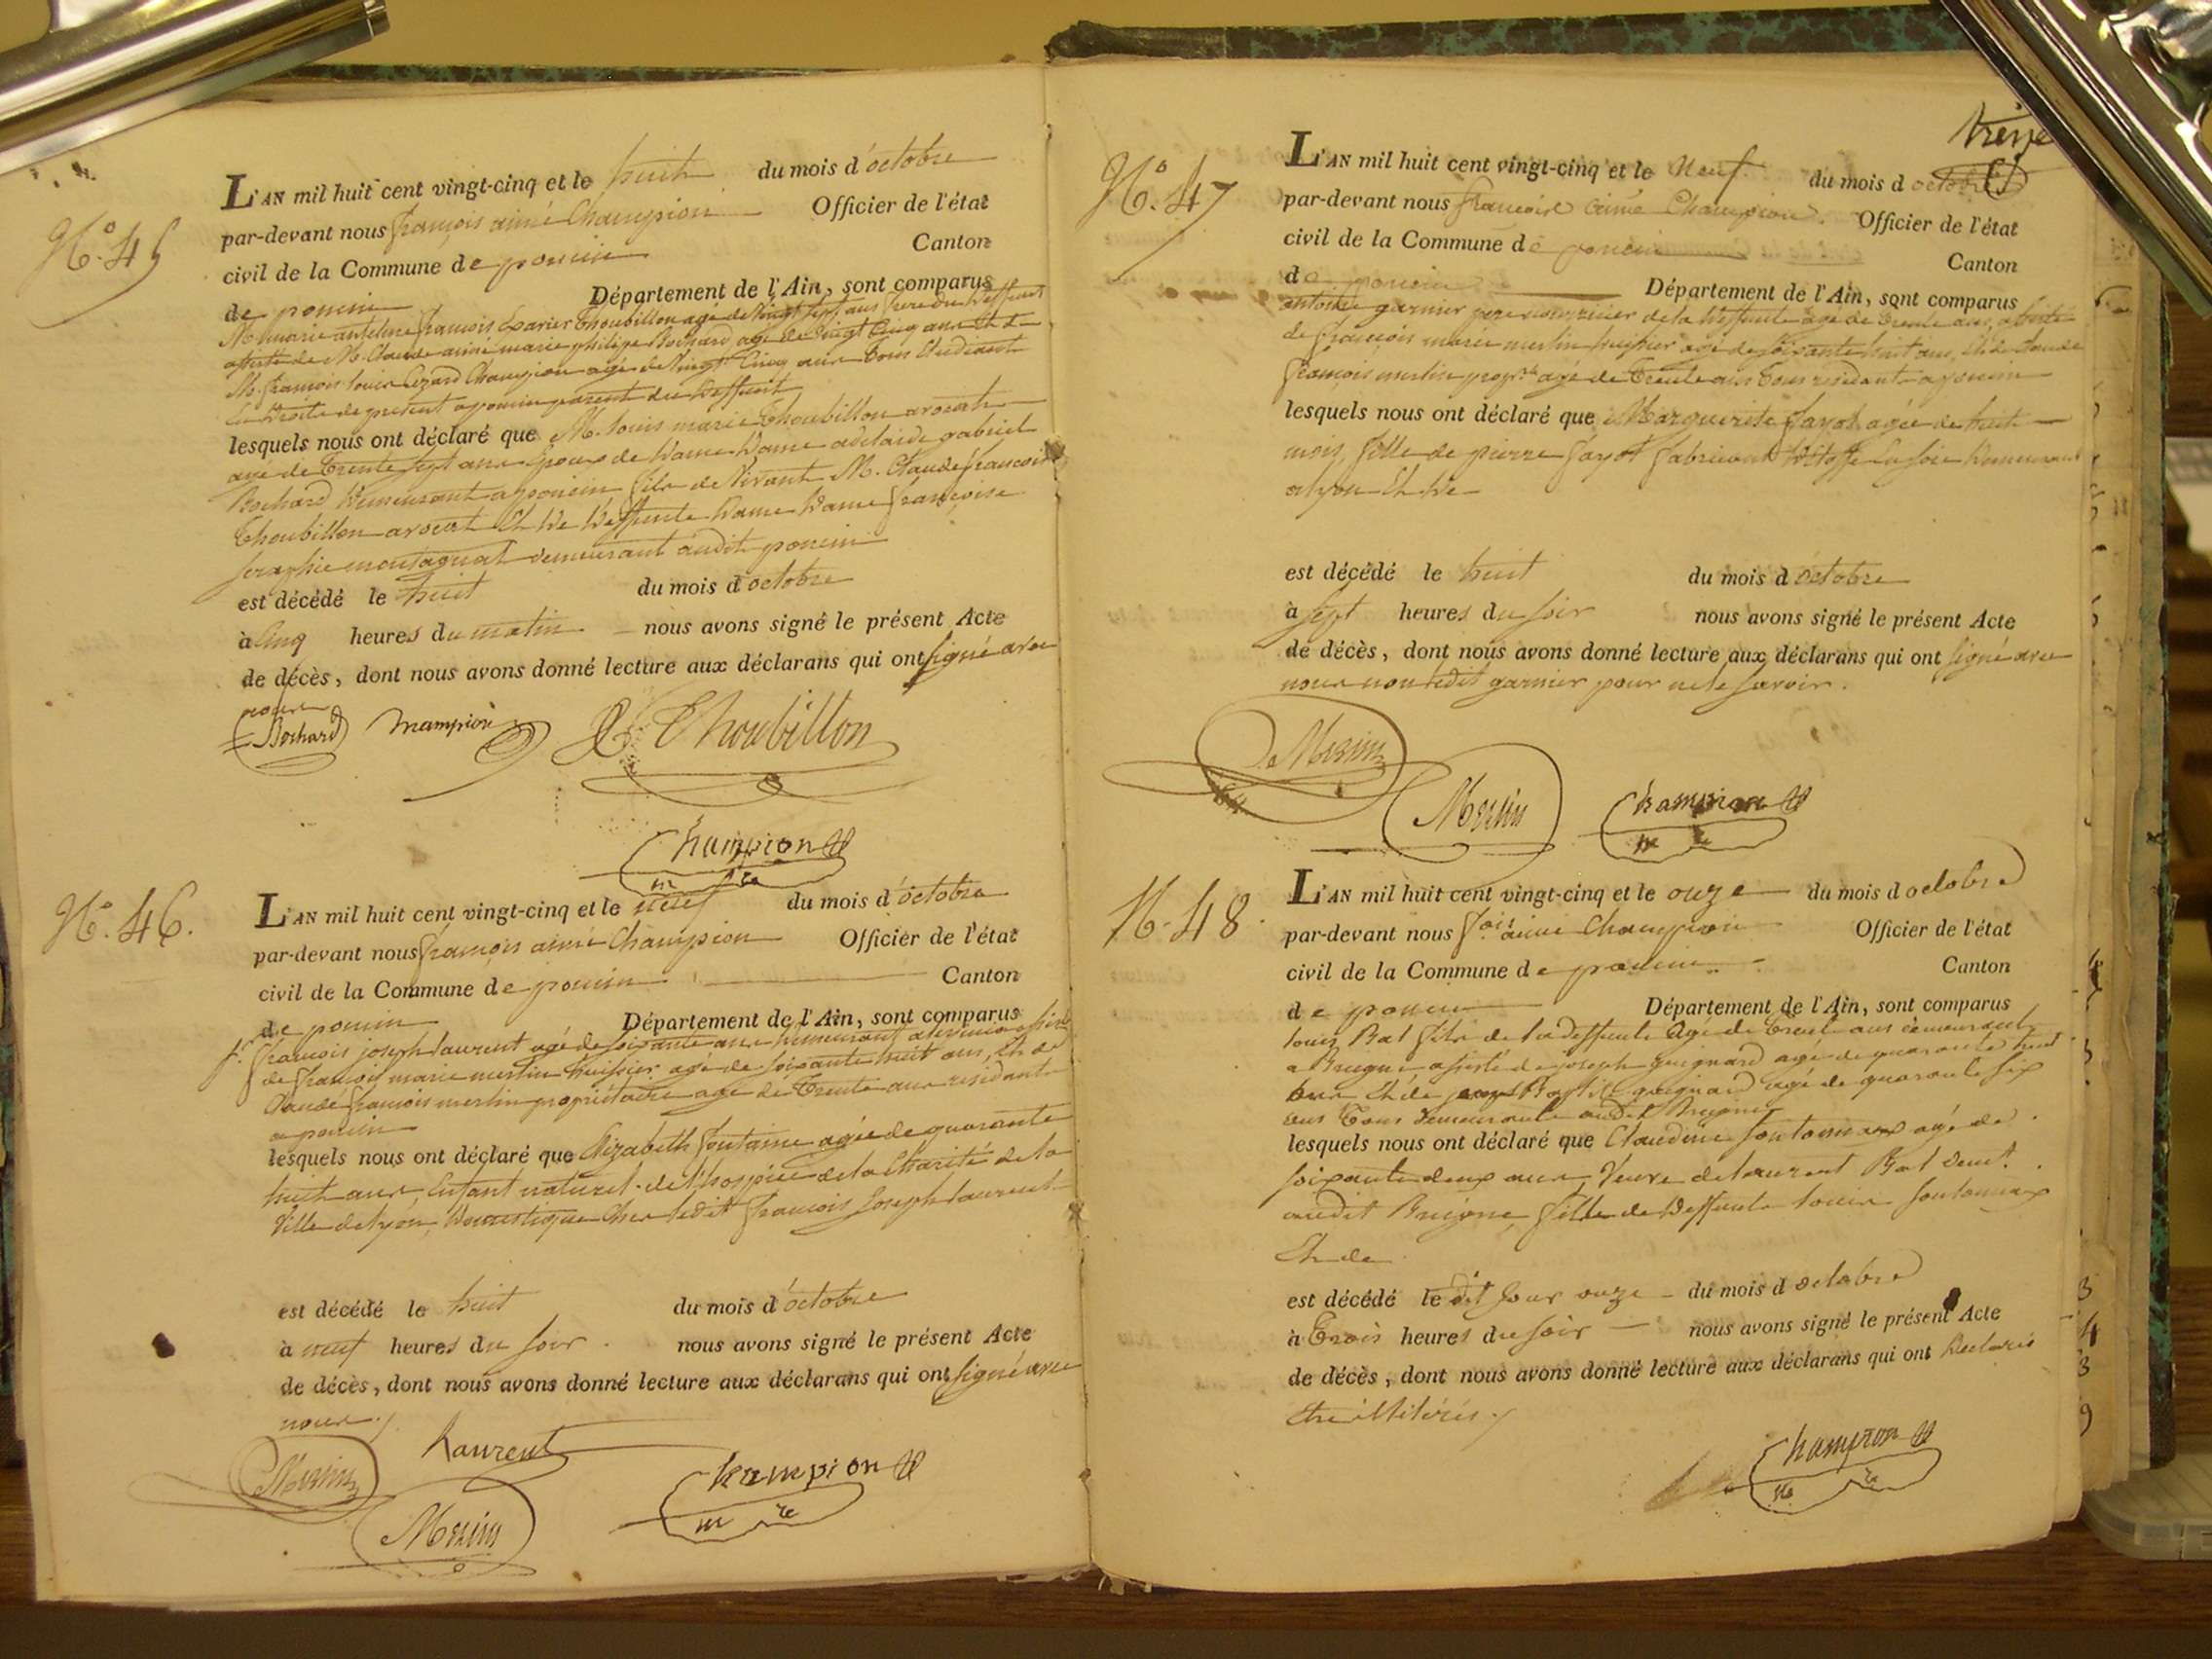 N°. 45
L'AN mil huit cent vingt-cinq et le huit du mois d'octobre
par-devant nous françois aimé Champion Officier de l'état
civil de la Commune de poncin Canton
de poncin Département de l'Ain, sont comparus
M. marie antelme françois Xavier Thoubillon agé de vingt sept ans frere du deffunt
assisté de M. Claude aimé marie philipe Bochard agé de vingt Cinq ans Et de
M. françois louis Cezard Champion agé de vingt Cinq ans tous Etudiant
En Droits de present a poncin parent du deffunt
lesquels nous ont déclaré que M. louis marie Thoubillon avocat
agé de Trente sept ans Epoux de dame dame adelaide gabriel
Bochard demeurant a poncin fils de vivant M. Claude francois
Thoubillon avocat Et de deffunte dame dame françoise
seraphie montagnat demeurant audit poncin
est décédé le huit du mois d'octobre
à Cinq heures du matin nous avons signé le présent Acte
de décès, dont nous avons donné lecture aux déclarans qui ont signé avec
nous
Bochard Champion Thoubillon
Champion
m re
N°. 46.
L'AN mil huit cent vingt-cinq et le neuf du mois d'octobre
par-devant nous françois aimé Champion Officier de l'état
civil de la Commune de poncin Canton
de poncin Département de l'Ain, sont comparus
françois joseph laurent agé de soixante ans demeurant assisté
de françois marie merlin huissier agé de soixante huit ans, Et de
Claude francois merlin propriétaire agé de Trente ans residant
a poncin
lesquels nous ont déclaré que Elizabeth fontaine agée de quarante
huit ans, Enfant naturel de l'hospice de la Charité de la
Ville de lyon, domestique Chez ledit francois Joseph laurent
est décédé le huit du mois d'octobre
à neuf heures du soir nous avons signé le présent Acte
de décès, dont nous avons donné lecture aux déclarans qui ont signé avec
nous
Merlin Laurent
Merlin Champion
m re
treize
N°. 47
L'AN mil huit cent vingt-cinq et le Neuf du mois d octobre
par-devant nous françois aimé Champion Officier de l'état
civil de la Commune de poncin Canton
de poncin Département de l'Ain, sont comparus
antoine garnier pere nourricier de la deffunte agé de trente ans, assisté
de françois marie merlin huissier agé de soixante huit ans, Et de Claude
françois merlin propre. agé de Trente ans Tous residants a poncin
lesquels nous ont déclaré que Marguerite fayot agée de huit
mois, fille de pierre fayot fabricant d'Etoffe En soie demeurant
a lyon Et de
est décédé le huit du mois d octobre
à sept heures du soir nous avons signé le présent Acte
de décès, dont nous avons donné lecture aux déclarans qui ont signé avec
nous non ledit garnier pour ne le savoir.
Merlin
Merlin Champion
m re
N. 48.
L'AN mil huit cent vingt-cinq et le onze du mois d octobre
par-devant nous fois. aimé Champion Officier de l'état
civil de la Commune de poncin Canton
de poncin Département de l'Ain, sont comparus
louis Bat fils de la deffunte agé de Trente ans demeurant
a Breigne assisté de joseph guignard agé de quarante huit
ans Et de Baptiste guignard agé de quarante six
ans Tous demeurants audit
lesquels nous ont déclaré que Claudine fontannaux agé de
soixante deux ans, Veuve de laurent Bat demt.
audit fille de deffunte louis fontannaux
Et de
est décédé le dit Jour onze du mois d octobre
à Trois heures du soir nous avons signé le présent Acte
de décès, dont nous avons donné lecture aux déclarans qui ont declarés
Etre illiterés
Champion
m re